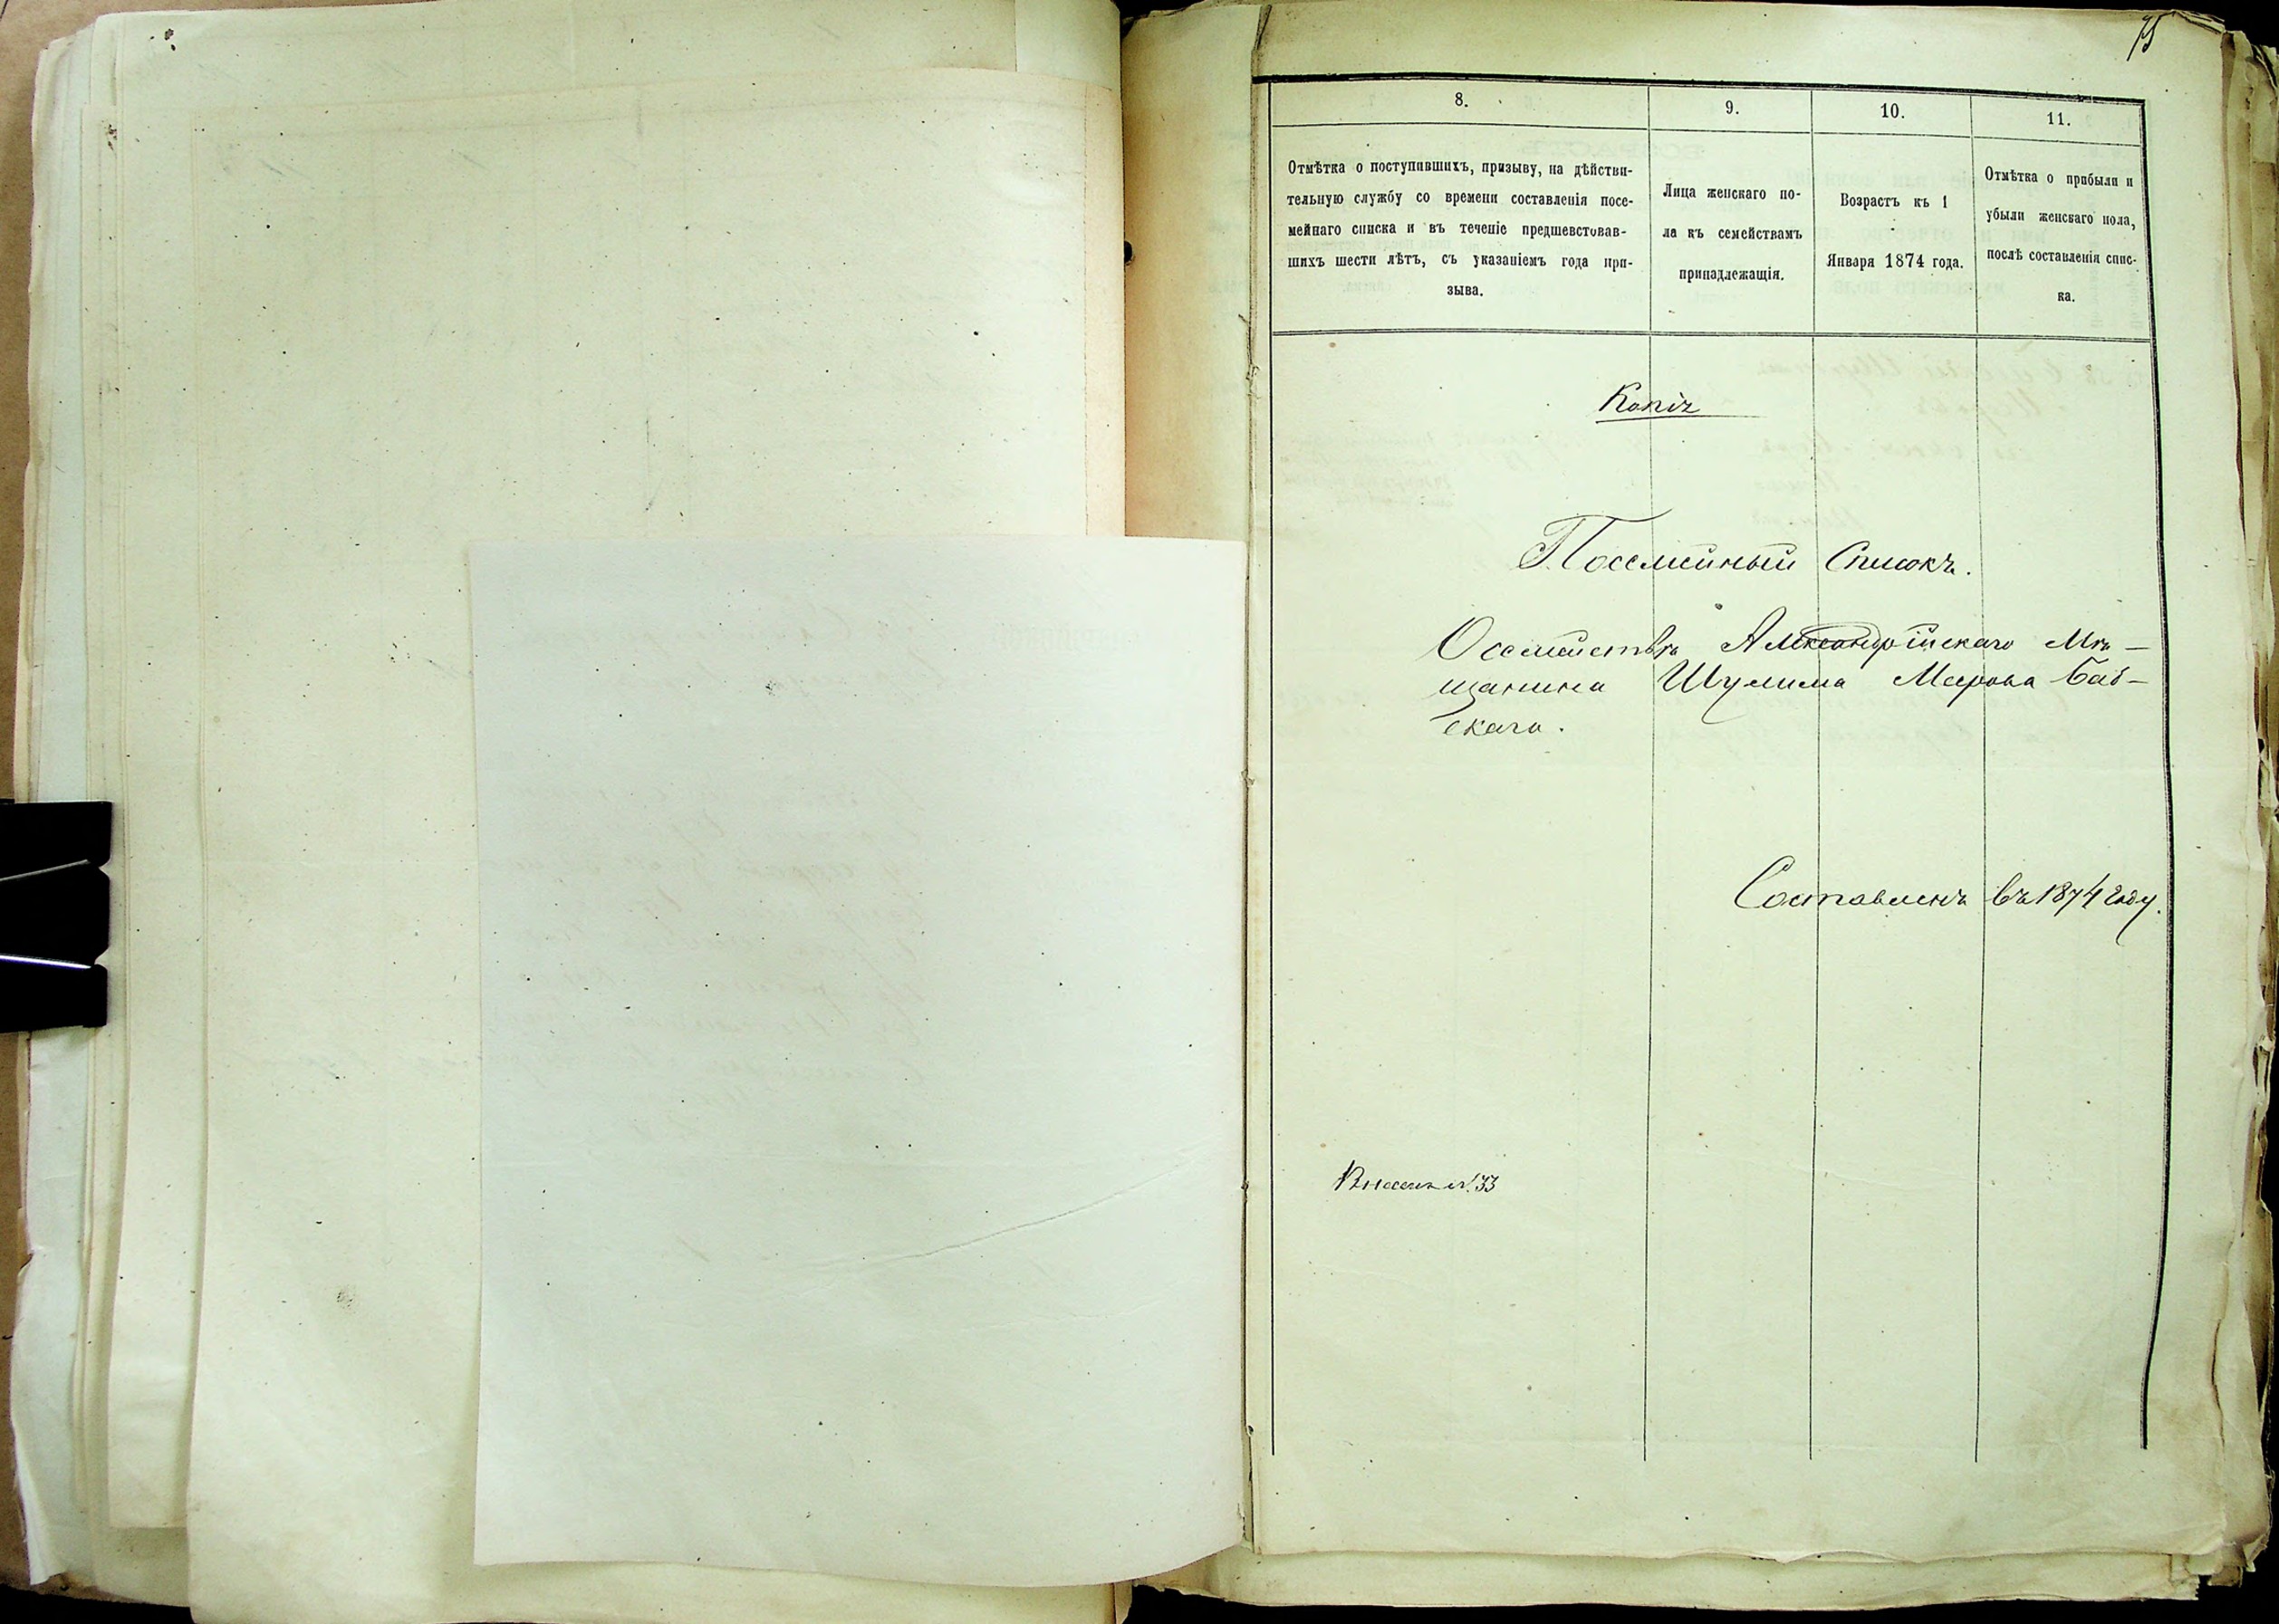 75
8.
9.
10.
11.
Отмѣтка о поступившихъ, призыву, на дѣйстви-
тельную службу со времени составленія посе-
мейнаго списка и въ теченіе предшевствовав-
шихъ шести лѣтъ, съ указаніемъ года при-
зыва.
Лица женскаго по-
ла къ семействамъ
принадлежащія.
Возрастъ къ 1
Января 1874 года.
Отмѣтка о прибыли и
убыли женскаго пола,
послѣ составленія спис-
ка.
Копія
Посемейный Списокъ.
О семействѣ Александрійскаго Мѣ-
щанина Шулима Меерова Баб-
скаго.
Составленъ въ 1874 году.
№ 33